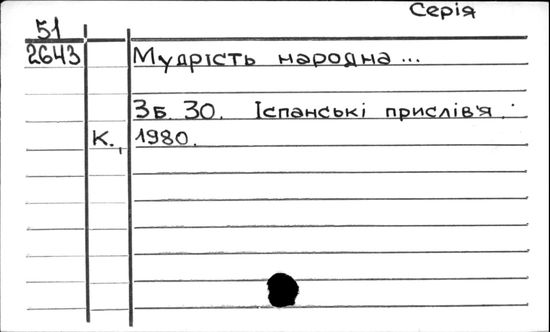 Серія
51
2643 Мудрість народна...
Зб. 30. Іспанські прислів'я.
К., 1980.